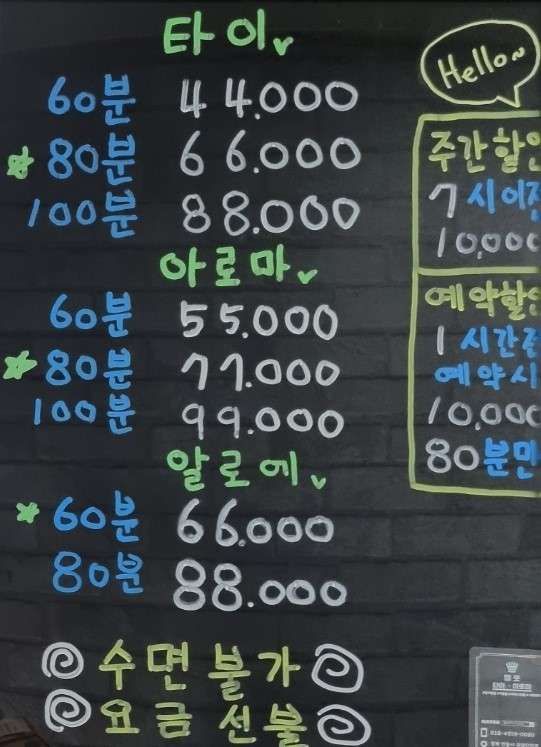 타이
60분 44.000
80분 66.000
100분 88.000
아로마
60분 55.000
80분 77.000
100분 99.000
알로에
60분 66.000
80분 88.000
수면 불가
요금 선불
Hello~
주간할인
7시이전
10,000
예약할인
1시간전
예약시
10,000
80분만